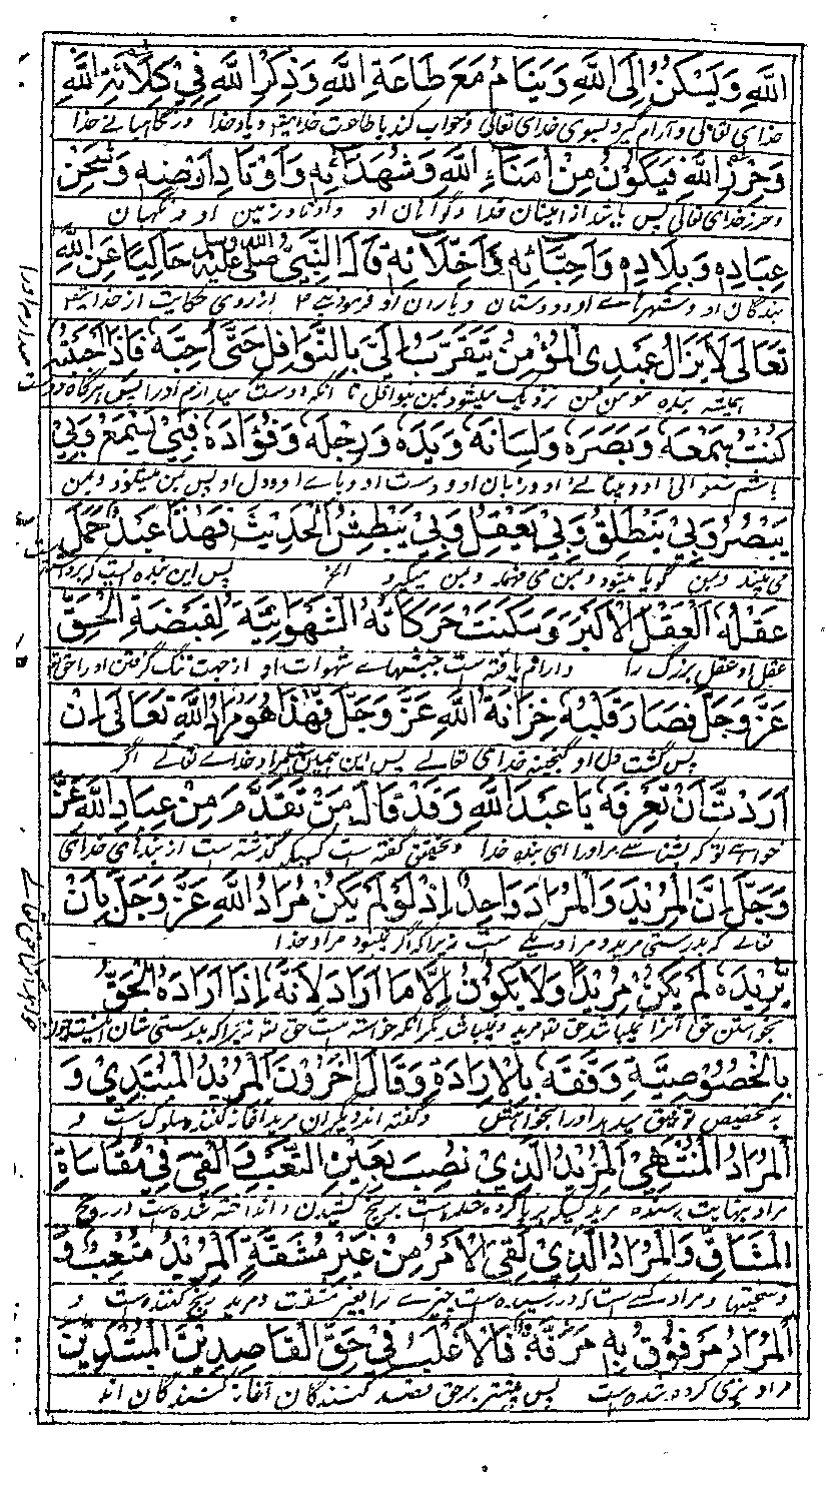 اللّٰهِ وَيَسْكُنُ اِلَى اللّٰهِ وَيَنَامُ مَعَ طَاعَةِ اللّٰهِ وَذِكْرِ اللّٰهِ فِيْ كِلَائَةِ اللّٰهِ
خدای تعالی و آرام گیرد بسوی خدای تعالی و خواب کند با طاعت خدای و یاد خدا در نگاهبانی خدا
وَحِرْزِ اللّٰهِ فَيَكُوْنُ مِنْ اُمَنَاءِ اللّٰهِ وَشُهَدَائِهِ وَاَوْتَادِ اَرْضِهِ وَشِحَنِ
و حرز خدای تعالی پس باشد از امینان خدا و گواهان او و اوتاد زمین او و نگهبان
عِبَادِهِ وَبِلَادِهِ وَاَحِبَّائِهِ وَاَخِلَّائِهِ قَالَ النَّبِيُّ صلى الله عليه وسلم حَاكِيًا عَنِ اللّٰهِ
بندگان او و شهرهای او و دوستان و یاران او فرمود از روی حکایت از خدای
تَعَالَى لَا يَزَالُ عَبْدِى الْمُؤْمِنُ يَتَقَرَّبُ اِلَيَّ بِالنَّوَافِلِ حَتَّى اُحِبَّهُ فَاِذَا اَحْبَبْتُهُ
همیشه بنده مومن من نزدیک میشود بمن بنوافل تا آنکه دوست میدارم او را پس هرگاه
كُنْتُ سَمْعَهُ وَبَصَرَهُ وَلِسَانَهُ وَيَدَهُ وَرِجْلَهُ وَفُؤَادَهُ فَبِيْ يَسْمَعُ وَبِيْ
باشم شنوائی او و بینائی او و زبان او و دست او و پای او و دل او پس بمن میشنود و بمن
يُبْصِرُ وَبِيْ يَنْطِقُ وَبِيْ يَعْقِلُ وَبِيْ يَبْطِشُ الْحَدِيْثَ فَهٰذَا عَبْدٌ حَمَلَ
می بیند و بمن گویا میشود و بمن می فهمد و بمن میگیرد الخ پس این بنده ایست که
عَقْلُهُ الْعَقْلَ الْاَكْبَرَ وَسَكَنَتْ حَرَكَاتُهُ الشَّهْوَانِيَّةُ لِقَبْضَةِ الْحَقِّ
عقل او عقل بزرگ را و آرام یافته است جنبشهای شهوات او از جهت گرفتن او را حق
عَزَّ وَجَلَّ فَصَارَ قَلْبُهُ خِزَانَةَ اللّٰهِ عَزَّ وَجَلَّ فَهٰذَا هُوَ مُرَادُ اللّٰهِ تَعَالَى اِنْ
پس گشت دل او گنجینه خدای تعالی پس این مراد خدای تعالی اگر
اَرَدْتَ اَنْ تَعْرِفَهُ يَا عَبْدَ اللّٰهِ وَقَدْ قَالَ مَنْ تَقَدَّمَ مِنْ عِبَادِ اللّٰهِ عَزَّ
خواهی تو که بشناسی مر او را ای بنده خدا و بتحقیق گفته است کسیکه گذشته است از بندهای خدای
وَجَلَّ اِنَّ الْمُرِيْدَ وَالْمُرَادَ وَاحِدٌ اِذْ لَوْ لَمْ يَكُنْ مُرَادُ اللّٰهِ عَزَّ وَجَلَّ بِاَنْ
تعالی که بدرستی مرید و مراد یکی است زیرا که اگر نمیبود مراد خدا
يُّرِيْدَهُ لَمْ يَكُنْ مُرِيْدًا وَلَا يَكُوْنُ اِلَّا مَا اَرَادَ لِاَنَّهُ اِذَا اَرَادَهُ الْحَقُّ
بخواستن حق آنرا نمیباشد مرید و نمیباشد مگر آنکه خواسته است حق زیرا که بدرستی شان
بِالْخُصُوْصِيَّةِ وَفَّقَهُ بِالْاِرَادَةِ وَقَالَ اٰخَرُوْنَ الْمُرِيْدُ الْمُبْتَدِيْ وَ
بتخصیص توفیق میدهد او را و گفته اند دیگران مرید آغاز کننده سلوک است و
الْمُرَادُ الْمُنْتَهِيْ الْمُرِيْدُ الَّذِيْ نُصِبَ بِعَيْنِ التَّعَبِ وَاُلْقِيَ فِيْ مُقَاسَاةِ
مراد بنهایت رسنده مرید کسیکه برپا کرده شده است برنج کشیدن و انداخته شده است در رنج
الْمَشَاقِّ وَالْمُرَادُ الَّذِيْ لَقِيَ الْاَمْرَ مِنْ غَيْرِ مَشَقَّةٍ الْمُرِيْدُ مُتْعَبٌ وَ
و سختیها و مراد کسی است که رسیده است چیزی را بغیر مشقت و مرید رنج کننده است و
الْمُرَادُ مَرْفُوْقٌ بِهِ مُرَفَّهٌ فَالْاَغْلَبُ فِيْ حَقِّ الْقَاصِدِيْنَ الْمُبْتَدِيْنَ
مراد نرمی کرده شده است پس بیشتر در حق قصد کنندگان آغاز کنندگان اند